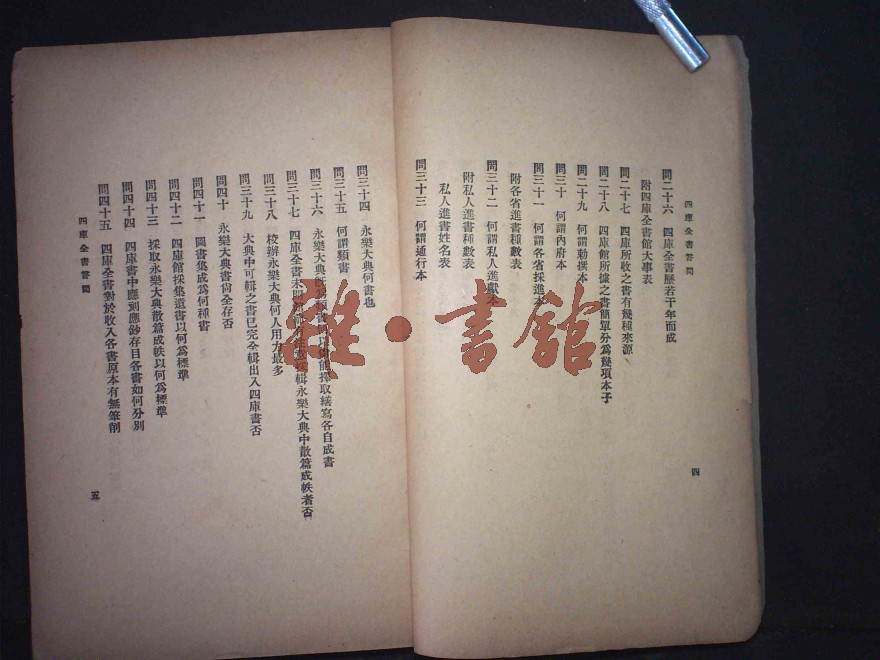 四庫全書答問
問二十六 四庫全書歷若干年而成
附四庫全書館大事表
問二十七 四庫所收之書有幾種來源
問二十八 四庫館所據之書簡單分為幾項本子
問二十九 何謂勅撰本
問三十 何謂內府本
問三十一 何謂各省採進本
附各省進書種數表
問三十二 何謂私人進獻本
附私人進書種數表
私人進書姓名表
問三十三 何謂通行本
四
問三十四 永樂大典何書也
問三十五 何謂類書
問三十六 永樂大典既為類書 擇取繕寫各自成書
問三十七 四庫全書未開 輯永樂大典中散篇成帙者否
問三十八 校辦永樂大典何人用力最多
問三十九 大典中可輯之書已完全輯出入四庫書否
問四十 永樂大典書尙全存否
問四十一 圖書集成為何種書
問四十二 四庫館採集遺書以何為標準
問四十三 採取永樂大典散篇成帙以何為標準
問四十四 四庫書中應刻應鈔存目各書如何分別
問四十五 四庫全書對於收入各書原本有無筆削
四庫全書答問
五
雜·書館